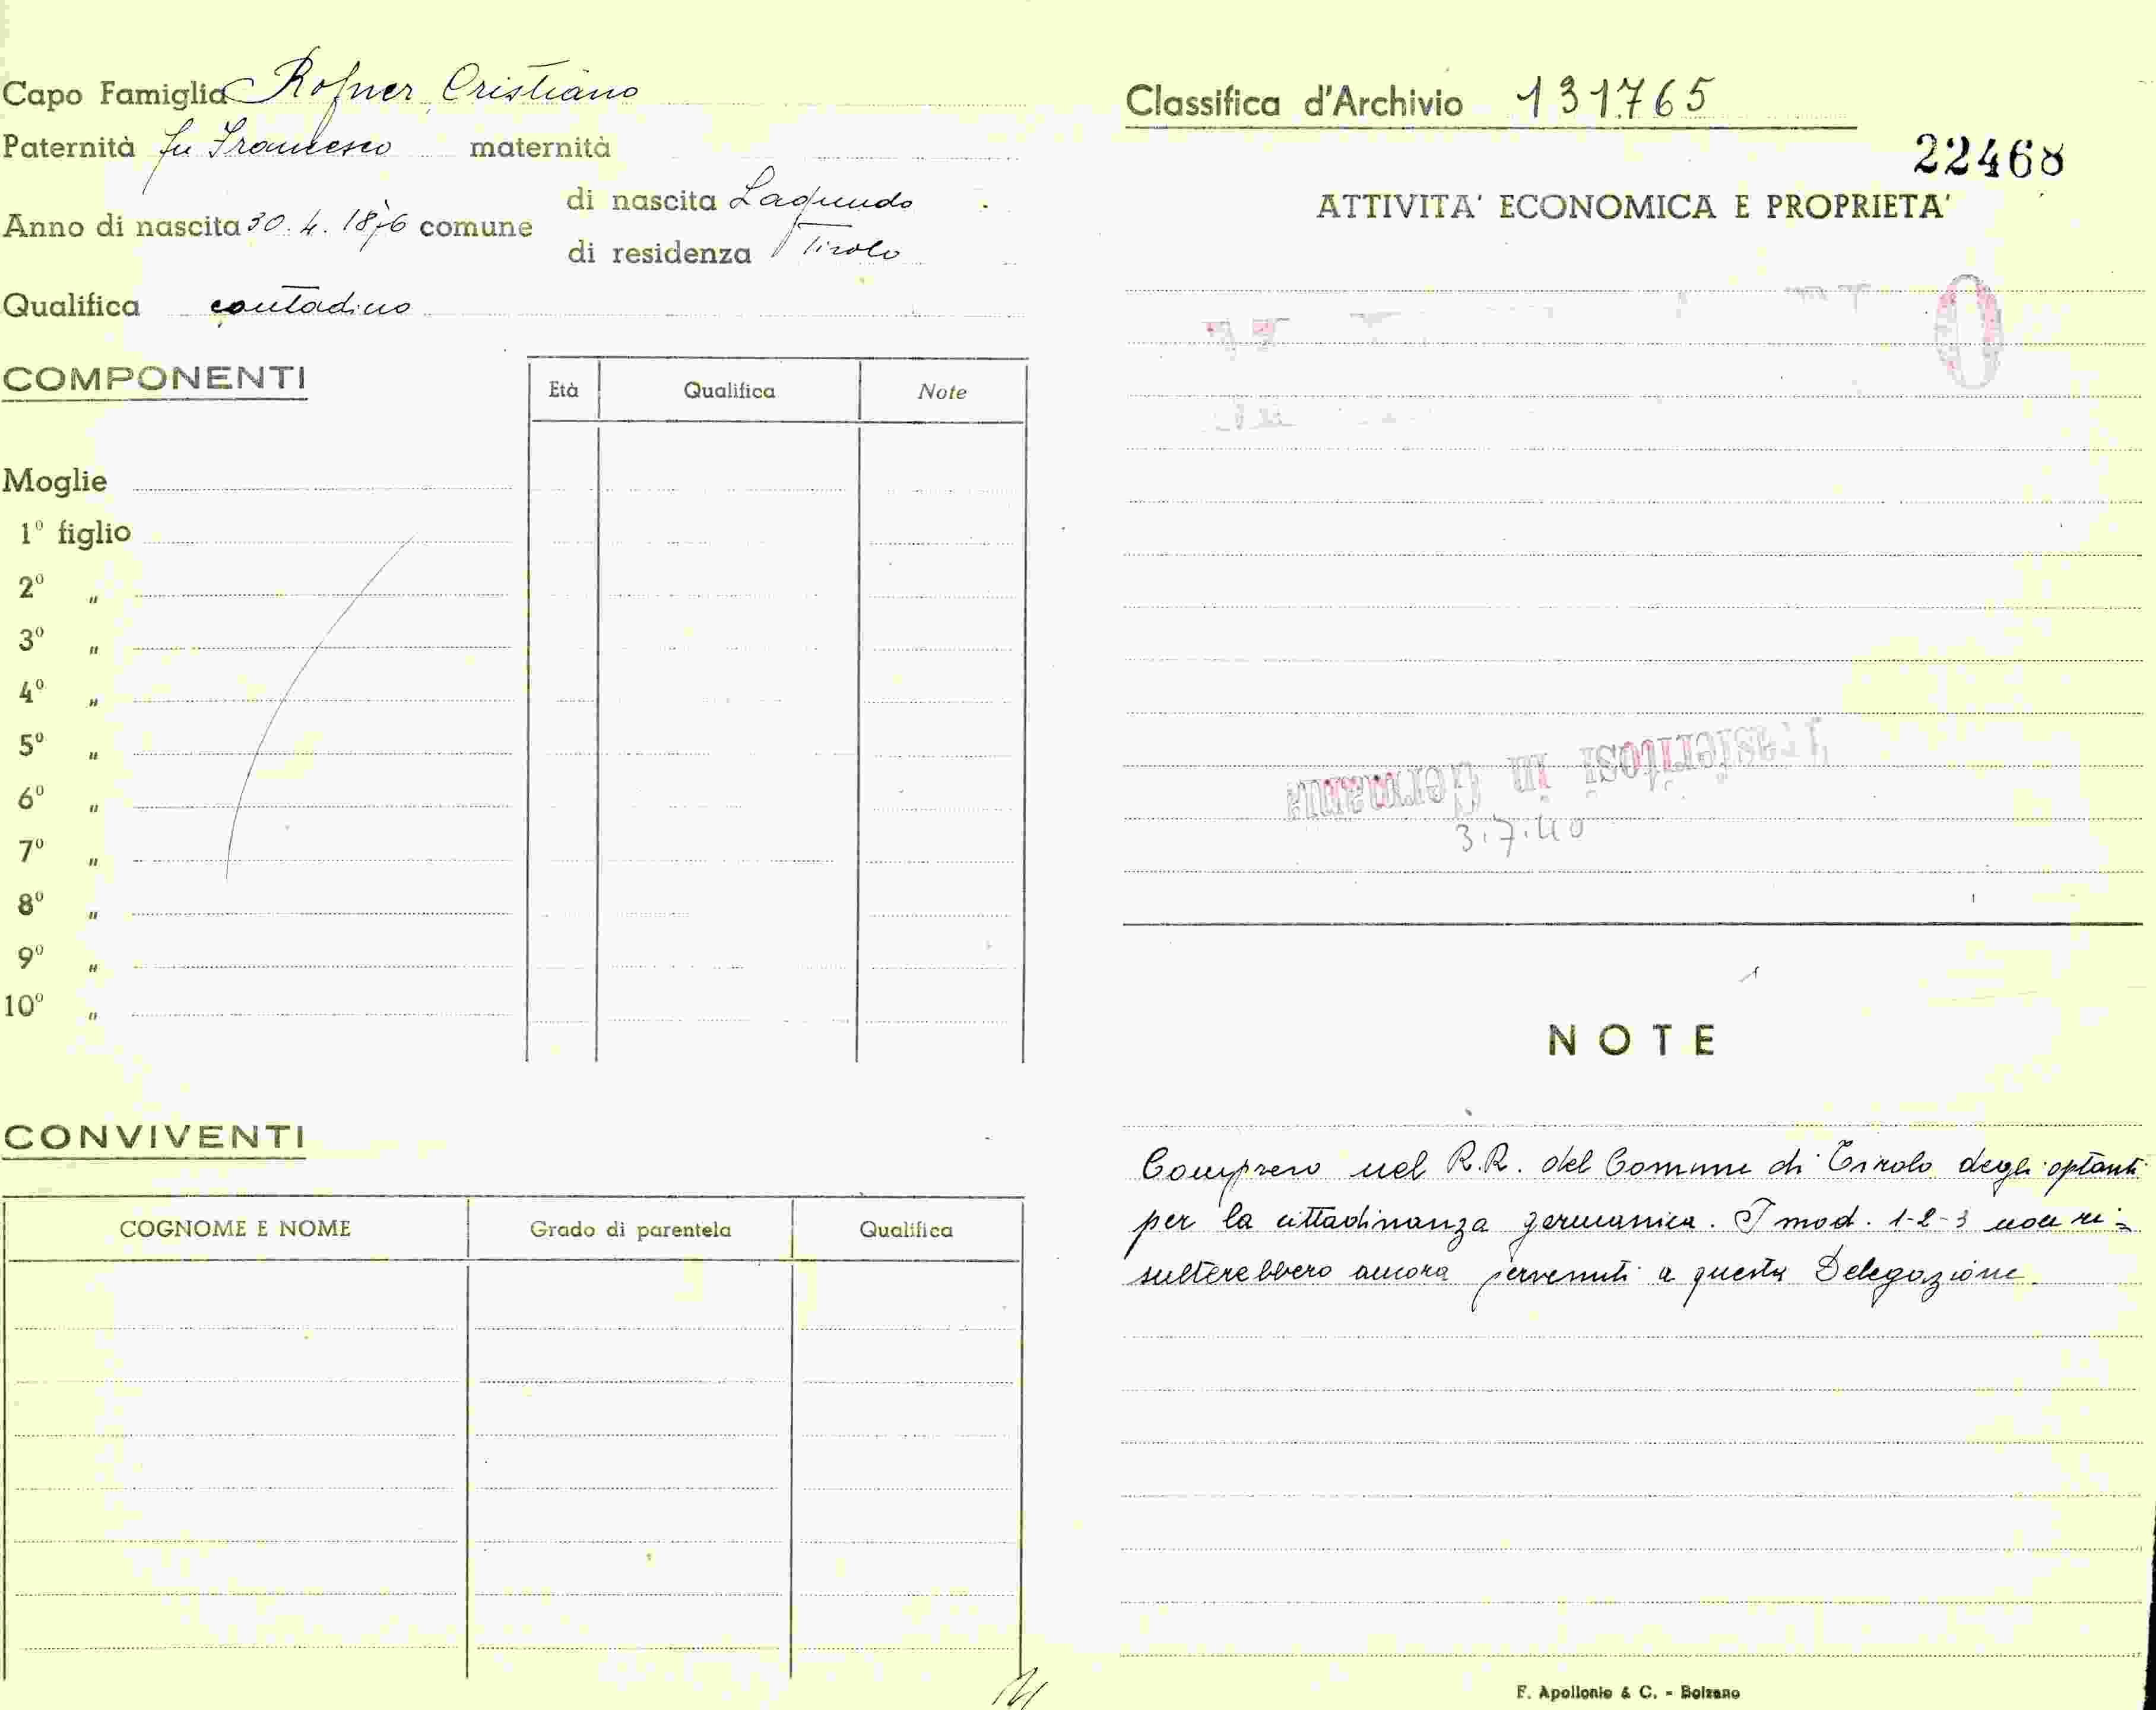 Capo Famiglia Rofner Cristiano
Paternità fu Francesco maternità
Anno di nascita 30.4.1876 comune di nascita Lagundo
di residenza Tirolo
Qualifica contadino
COMPONENTI
Età Qualifica Note
Moglie
1º figlio
2º "
3º "
4º "
5º "
6º "
7º "
8º "
9º "
10º "
CONVIVENTI
COGNOME E NOME Grado di parentela Qualifica
Classifica d'Archivio 131765
22468
ATTIVITA' ECONOMICA E PROPRIETA'
O
Trasferitosi in Germania
3.7.40
NOTE
Compreso nel R.R. del Comune di Tirolo degli optanti
per la cittadinanza germanica. I mod. 1-2-3 non ri=
sulterebbero ancora pervenuti a questa Delegazione.
F. Apollonio & C. - Bolzano